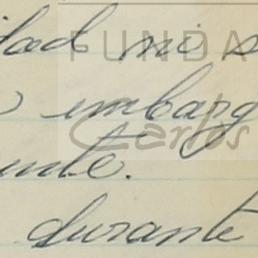 dad ni s
embarg
ente.
durante
FUNDA
Carlos